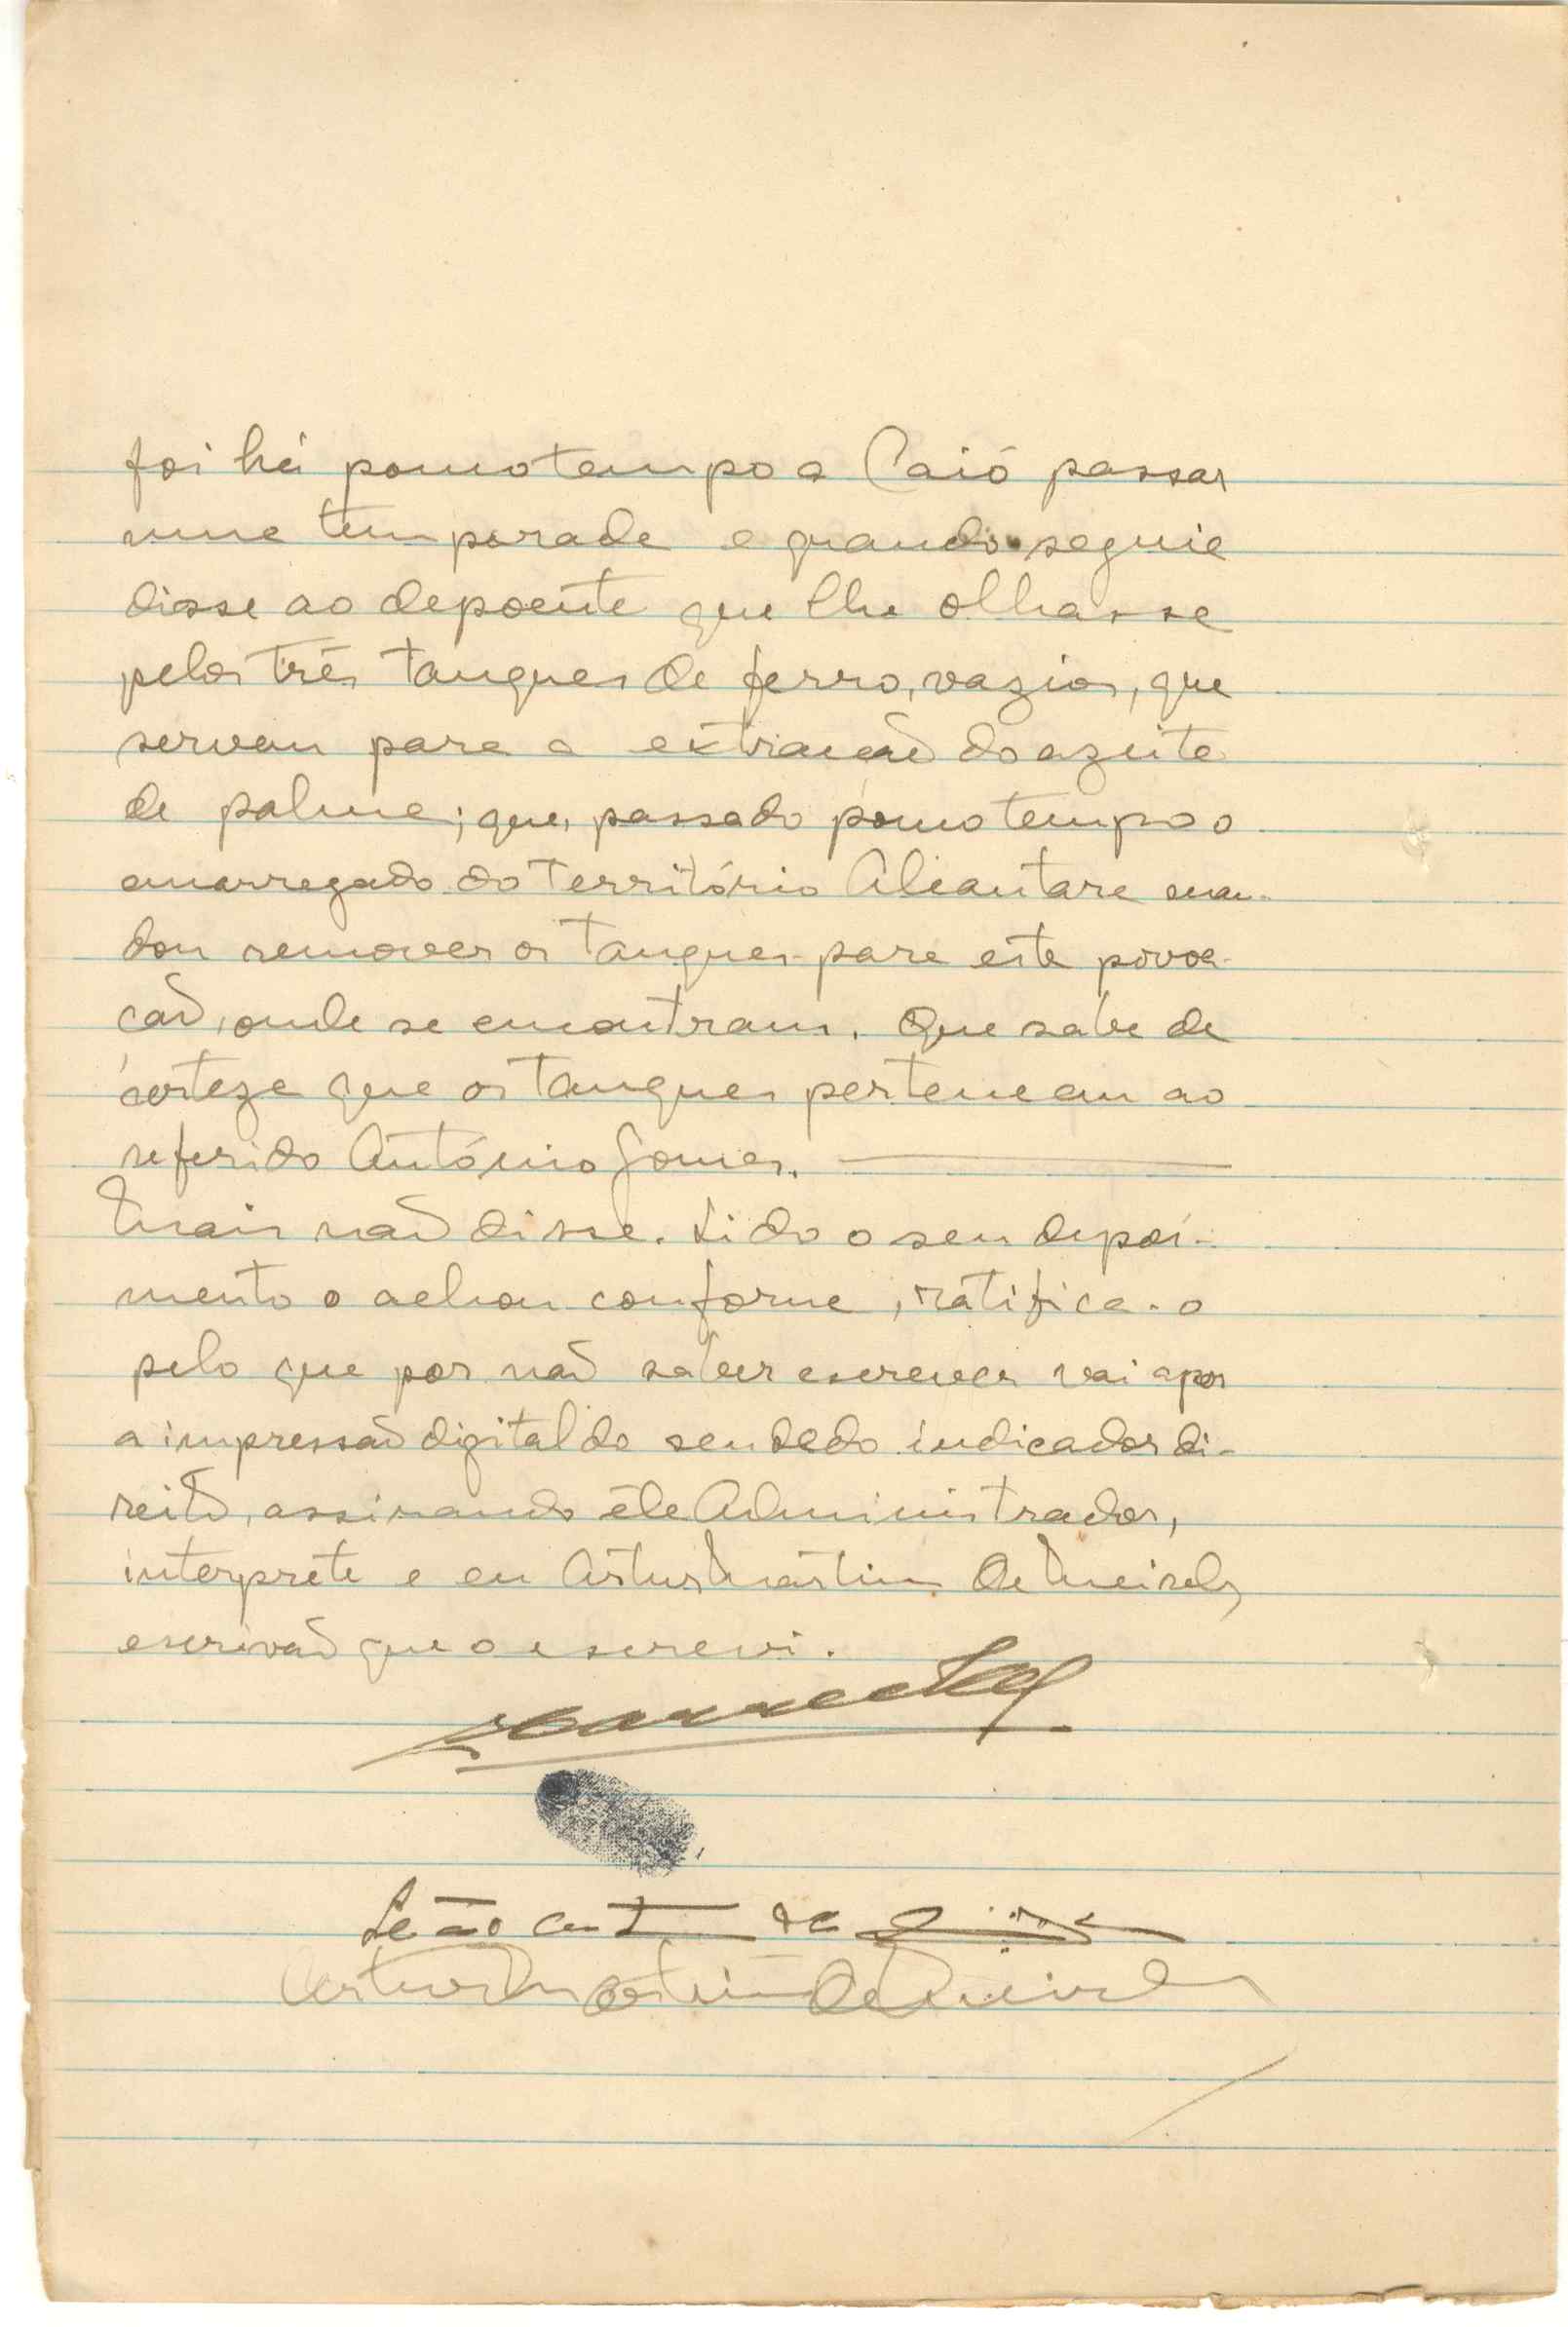 foi há pouco tempo a Caió passar
uma temporada e quando seguia
disse ao depoente que lhe olhasse
pelos três tanques de ferro, vazios, que
servem para a extracção do azeite
de palma; que, passado pouco tempo o
encarregado do território Alcantara man-
dou remover os tanques para esta povoa-
ção, onde se encontram. Que sabe de
certeza que os tanques pertencem ao
referido António Gomes.
Mais não disse. Lido o seu depoi-
mento o achou conforme, ratifica-o
pelo que por não saber escrever vai apor
a impressão digital do seu dedo indicador di-
reito, assinando êle Administrador,
interprete e eu Artur Martins De Meireles
escrivão que o escrevi.
Leão
Artur Martins De Meireles